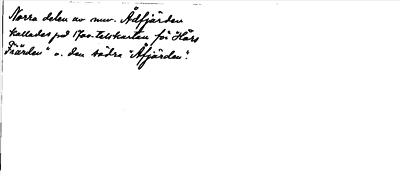 Norra delen av nuv. Ådfjärden
kallades på 1700-talskartan för "Hårs
Fjärden" o. den södra "Åfjärden".